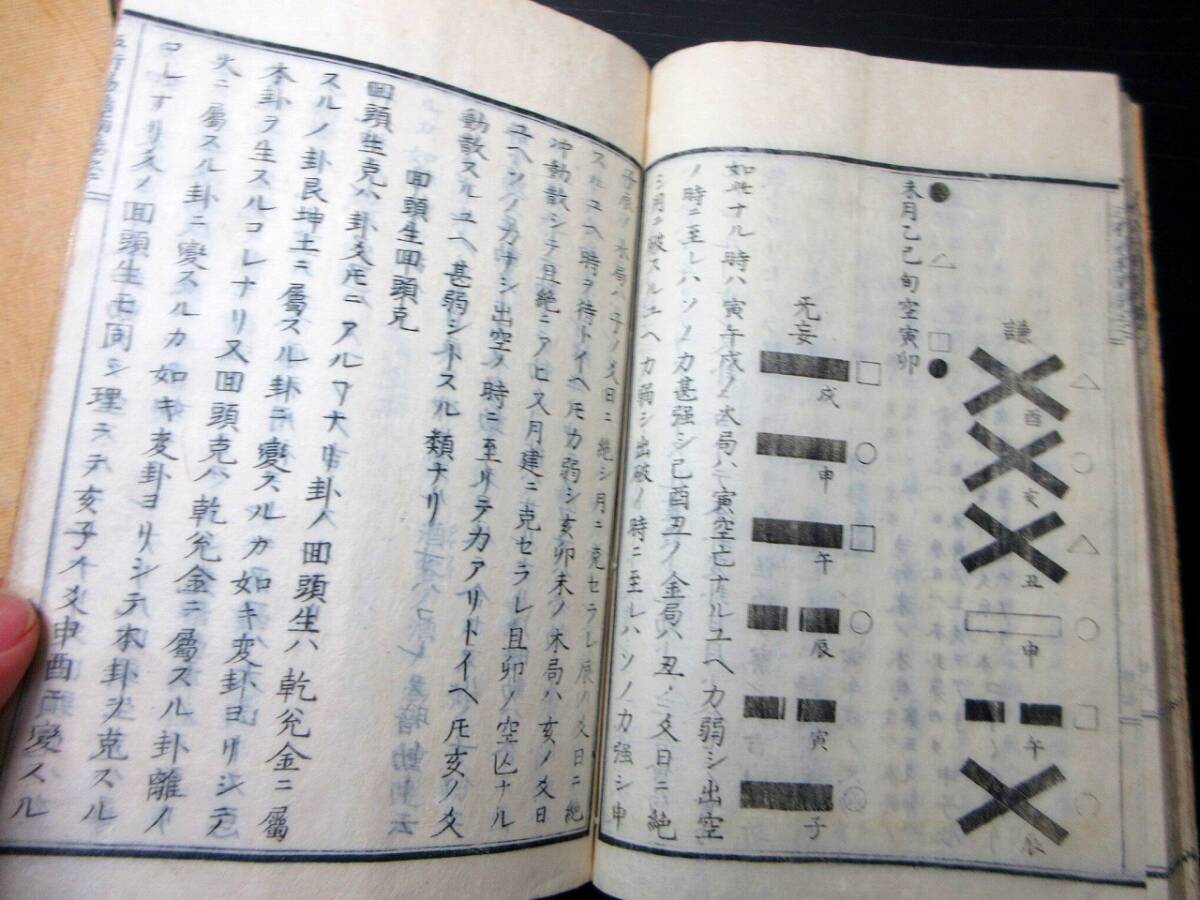 謙
酉
亥
丑
申
午
辰
未月己巳旬空寅卯
无妄
戌
申
午
辰
寅
子
如此ナル時ハ寅午戌ノ火局ハ寅空亡ナルユヘ力弱シ出空
ノ時ニ至レハソノ力甚強シ巳酉丑ノ金局ハ丑ノ爻日ニ絶
シ月ニ破スルユヘ力弱シ出破ノ時ニ至レハソノ力強シ申
子辰ノ水局ハ子ノ爻日ニ絶シ月ニ克セラレ辰ノ爻日ニ絶
スルユヘ時ヲ待トイヘ𪜈力弱シ亥卯未ノ木局ハ亥ノ爻日
冲動散シテ且絶ニアヒ又月建ニ克セラレ且卯ノ空亡ナル
ユヘソノ力ナシ出空ノ時ニ至リテ力アリトイヘ𪜈亥ノ爻
動散スルユヘ甚弱シトスル類ナリ
回頭生回頭克
回頭生克ハ卦爻𪜈ニアルヿナリ卦ノ回頭生ハ乾兌金ニ屬
スルノ卦艮坤土ニ屬スル卦ニ變スルカ如キ変卦ヨリシテ
本卦ヲ生スルコレナリ又回頭克ハ乾兌金ニ屬スル卦離ノ
火ニ屬スル卦ニ變スルカ如キ変卦ヨリシテ本卦ヲ克スル
コレナリ爻ノ回頭生モ同シ理ニテ亥子水爻申酉両變スル